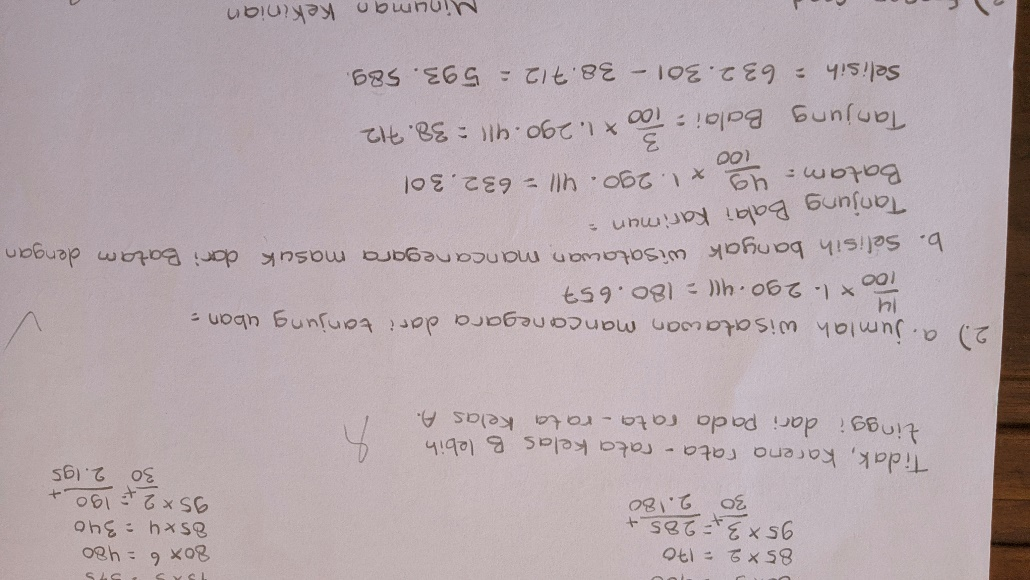 85 x 2 = 170
95 x 3 = 285 +
30 + 2.180
80 x 6 = 480
85 x 4 = 340
95 x 2 = 190 +
30 + 2.195
Tidak, karena rata-rata kelas B lebih
tinggi dari pada rata-rata kelas A.
2.) a. jumlah wisatawan mancanegara dari tanjung uban =
14/100 x 1.290.411 = 180.657
b. selisih banyak wisatawan mancanegara masuk dari Batam dengan
Tanjung Balai Karimun =
Batam = 49/100 x 1.290.411 = 632.301
Tanjung Balai = 3/100 x 1.290.411 = 38.712
Selisih = 632.301 - 38.712 = 593.589.
Minuman Kekinian